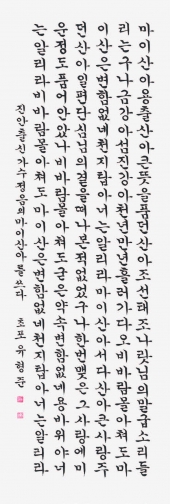 마이산아용출산아큰뜻을품던산아조선태조나랏님의말굽소리들
리는구나금강아섬진강아천년만년흘러가다오비바람몰아쳐도마
이산은변함없네천지탑아너는알리라마이산아서다산아큰사랑주
던산아일편단심님의곁을떠나본적없었구나한번맺은그사랑에미
운정도품어안았나비바람몰아쳐도굳은약속변함없네용바위야너
는알리라비바람몰아쳐도마이산은변함없네천지탑아너는알리라
진안출신가수정음의마이산아를쓰다 초포 유형준